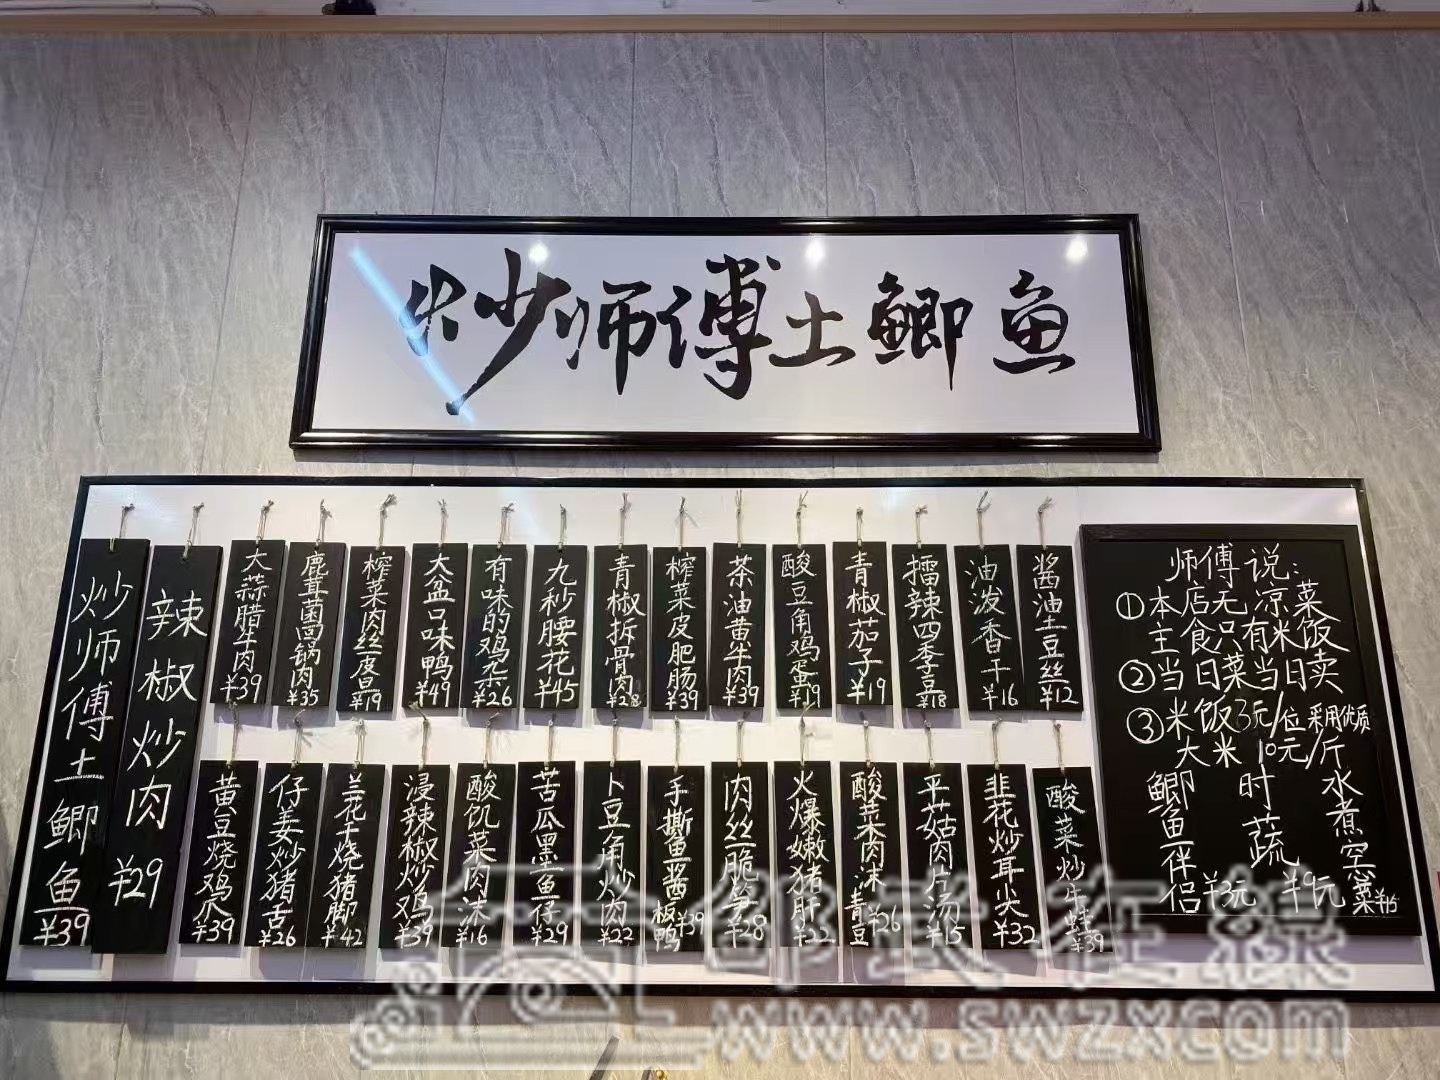 炒师傅土鲫鱼
炒师傅土鲫鱼 ¥39
辣椒炒肉 ¥29
大蒜腊牛肉 ¥39
鹿茸菌回锅肉 ¥35
榨菜肉丝皮皂 ¥19
大盆口味鸭 ¥49
有味的鸡杂 ¥26
九秒腰花 ¥45
青椒拆骨肉 ¥28
榨菜皮肥肠 ¥39
茶油黄牛肉 ¥39
酸豆角鸡蛋 ¥19
青椒茄子 ¥19
擂辣四季豆 ¥18
油泼香干 ¥16
酱油土豆丝 ¥12
黄豆烧鸡爪 ¥39
仔姜炒猪舌 ¥26
兰花干烧猪脚 ¥42
浸辣椒炒鸡 ¥39
酸饥菜肉沫 ¥16
苦瓜墨鱼仔 ¥29
卜豆角炒肉 ¥22
手撕鱼酱板鸭 ¥39
肉丝脆笋 ¥28
火爆嫩猪肝 ¥22
酸菜肉沫青豆 ¥26
平菇肉片汤 ¥15
韭花炒耳尖 ¥32
酸菜炒牛蛙 ¥39
师傅说:
①本店无凉菜
主食只有米饭
②当日菜当日卖
③米饭3元/位 采用优质
大米10元/斤
鲫鱼伴侣 ¥3元
时蔬 ¥9元
水煮空心菜 ¥15
邵武在線
www.swzx.com